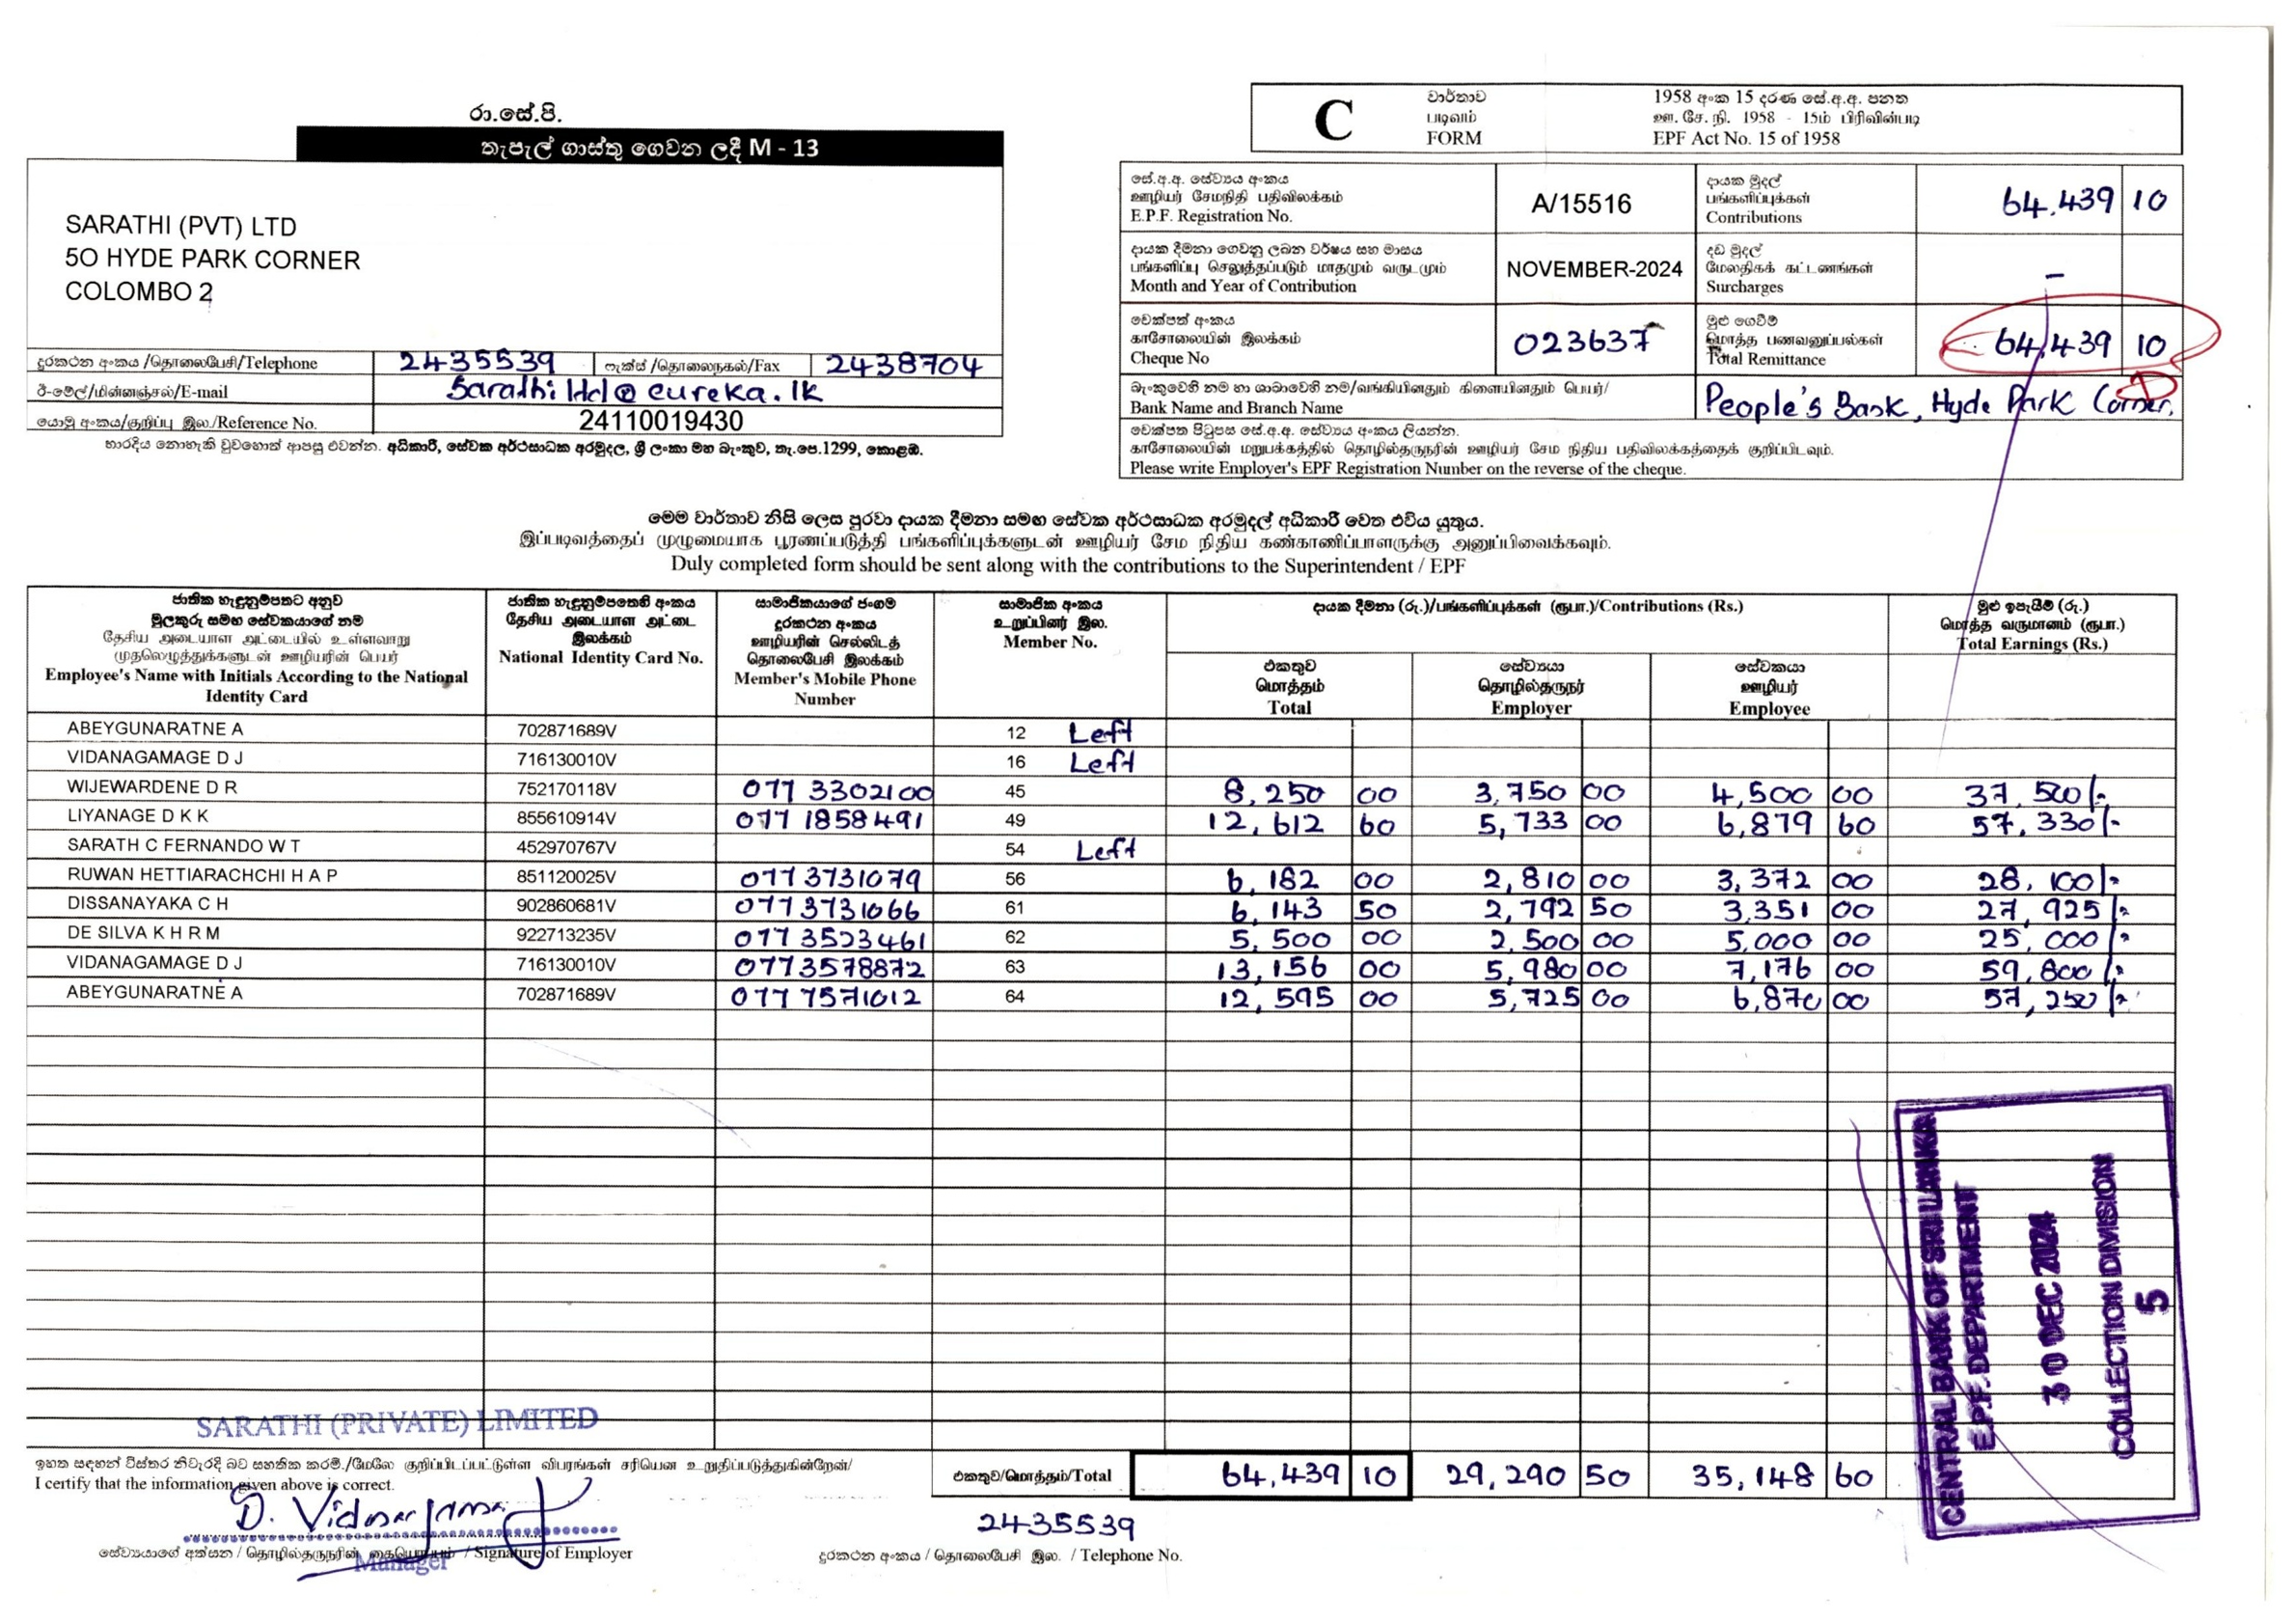 රා.සේ.පි.
තැපැල් ගාස්තු ගෙවන ලදී M - 13
SARATHI (PVT) LTD
5O HYDE PARK CORNER
COLOMBO 2
දුරකථන අංකය /தொலைபேசி/Telephone 2435539 ෆැක්ස් /தொலைநகல்/Fax 2438704
ඊ-මේල්/மின்னஞ்சல்/E-mail Sarathiltd@eureka.lk
යොමු අංකය/குறிப்பு இல./Reference No. 24110019430
භාරදිය නොහැකි වුවහොත් ආපසු එවන්න. අධිකාරී, සේවක අර්ථසාධක අරමුදල, ශ්‍රී ලංකා මහ බැංකුව, තැ.පෙ.1299, කොළඹ.
C
වාර්තාව 1958 අංක 15 දරණ සේ.අ.අ. පනත
படிவம் ஊ. சே. நி. 1958 - 15ம் பிரிவின்படி
FORM EPF Act No. 15 of 1958
සේ.අ.අ. සේව්‍යය අංකය
ஊழியர் சேமநிதி பதிவிலக்கம்
E.P.F. Registration No.
A/15516
දායක මුදල්
பங்களிப்புக்கள்
Contributions
64,439 10
දායක දීමනා ගෙවනු ලබන වර්ෂය සහ මාසය
பங்களிப்பு செலுத்தப்படும் மாதமும் வருடமும்
Month and Year of Contribution
NOVEMBER-2024
දඩ මුදල්
மேலதிகக் கட்டணங்கள்
Surcharges
–
චෙක්පත් අංකය
காசோலையின் இலக்கம்
Cheque No
023637
මුළු ගෙවීම්
மொத்த பணவனுப்பல்கள்
Total Remittance
64,439 10
බැංකුවෙහි නම හා ශාඛාවෙහි නම/வங்கியினதும் கிளையினதும் பெயர்/
Bank Name and Branch Name
People's Bank, Hyde Park Corner.
චෙක්පත පිටුපස සේ.අ.අ. සේව්‍යය අංකය ලියන්න.
காசோலையின் மறுபக்கத்தில் தொழில்தருநரின் ஊழியர் சேம நிதிய பதிவிலக்கத்தைக் குறிப்பிடவும்.
Please write Employer's EPF Registration Number on the reverse of the cheque.
මෙම වාර්තාව නිසි ලෙස පුරවා දායක දීමනා සමඟ සේවක අර්ථසාධක අරමුදල් අධිකාරී වෙත එවිය යුතුය.
இப்படிவத்தைப் முழுமையாக பூரணப்படுத்தி பங்களிப்புக்களுடன் ஊழியர் சேம நிதிய கண்காணிப்பாளருக்கு அனுப்பிவைக்கவும்.
Duly completed form should be sent along with the contributions to the Superintendent / EPF
ජාතික හැඳුනුම්පතට අනුව
මුලකුරු සමඟ සේවකයාගේ නම
தேசிய அடையாள அட்டையில் உள்ளவாறு
முதலெழுத்துக்களுடன் ஊழியரின் பெயர்
Employee's Name with Initials According to the National
Identity Card
ජාතික හැඳුනුම්පතෙහි අංකය
தேசிய அடையாள அட்டை
இலக்கம்
National Identity Card No.
සාමාජිකයාගේ ජංගම
දුරකථන අංකය
ஊழியரின் செல்லிடத்
தொலைபேசி இலக்கம்
Member's Mobile Phone
Number
සාමාජික අංකය
உறுப்பினர் இல.
Member No.
දායක දීමනා (රු.)/பங்களிப்புக்கள் (ரூபா.)/Contributions (Rs.)
එකතුව
மொத்தம்
Total
සේව්‍යයා
தொழில்தருநர்
Employer
සේවකයා
ஊழியர்
Employee
මුළු ඉපැයීම් (රු.)
மொத்த வருமானம் (ரூபா.)
Total Earnings (Rs.)
ABEYGUNARATNE A 702871689V 12 Left
VIDANAGAMAGE D J 716130010V 16 Left
WIJEWARDENE D R 752170118V 077 3302100 45 8,250 00 3,750 00 4,500 00 37,500/-
LIYANAGE D K K 855610914V 077 1858491 49 12,612 60 5,733 00 6,879 60 57,330/-
SARATH C FERNANDO W T 452970767V 54 Left
RUWAN HETTIARACHCHI H A P 851120025V 0773731079 56 6,182 00 2,810 00 3,372 00 28,100/-
DISSANAYAKA C H 902860681V 0773731066 61 6,143 50 2,792 50 3,351 00 27,925/-
DE SILVA K H R M 922713235V 077 3523461 62 5,500 00 2,500 00 5,000 00 25,000/-
VIDANAGAMAGE D J 716130010V 0773578872 63 13,156 00 5,980 00 7,176 00 59,800/-
ABEYGUNARATNE A 702871689V 077 7571012 64 12,595 00 5,725 00 6,870 00 57,250/-
CENTRAL BANK OF SRI LANKA
E.P.F. DEPARTMENT
30 DEC 2024
COLLECTION DIVISION
5
SARATHI (PRIVATE) LIMITED
ඉහත සඳහන් විස්තර නිවැරදි බව සහතික කරමි./மேலே குறிப்பிடப்பட்டுள்ள விபரங்கள் சரியென உறுதிப்படுத்துகின்றேன்/
I certify that the information given above is correct.
එකතුව/மொத்தம்/Total 64,439 10 29,290 50 35,148 60
2435539
සේව්‍යයාගේ අත්සන / தொழில்தருநரின் கையொப்பம் / Signature of Employer
Manager
දුරකථන අංකය / தொலைபேசி இல. / Telephone No.